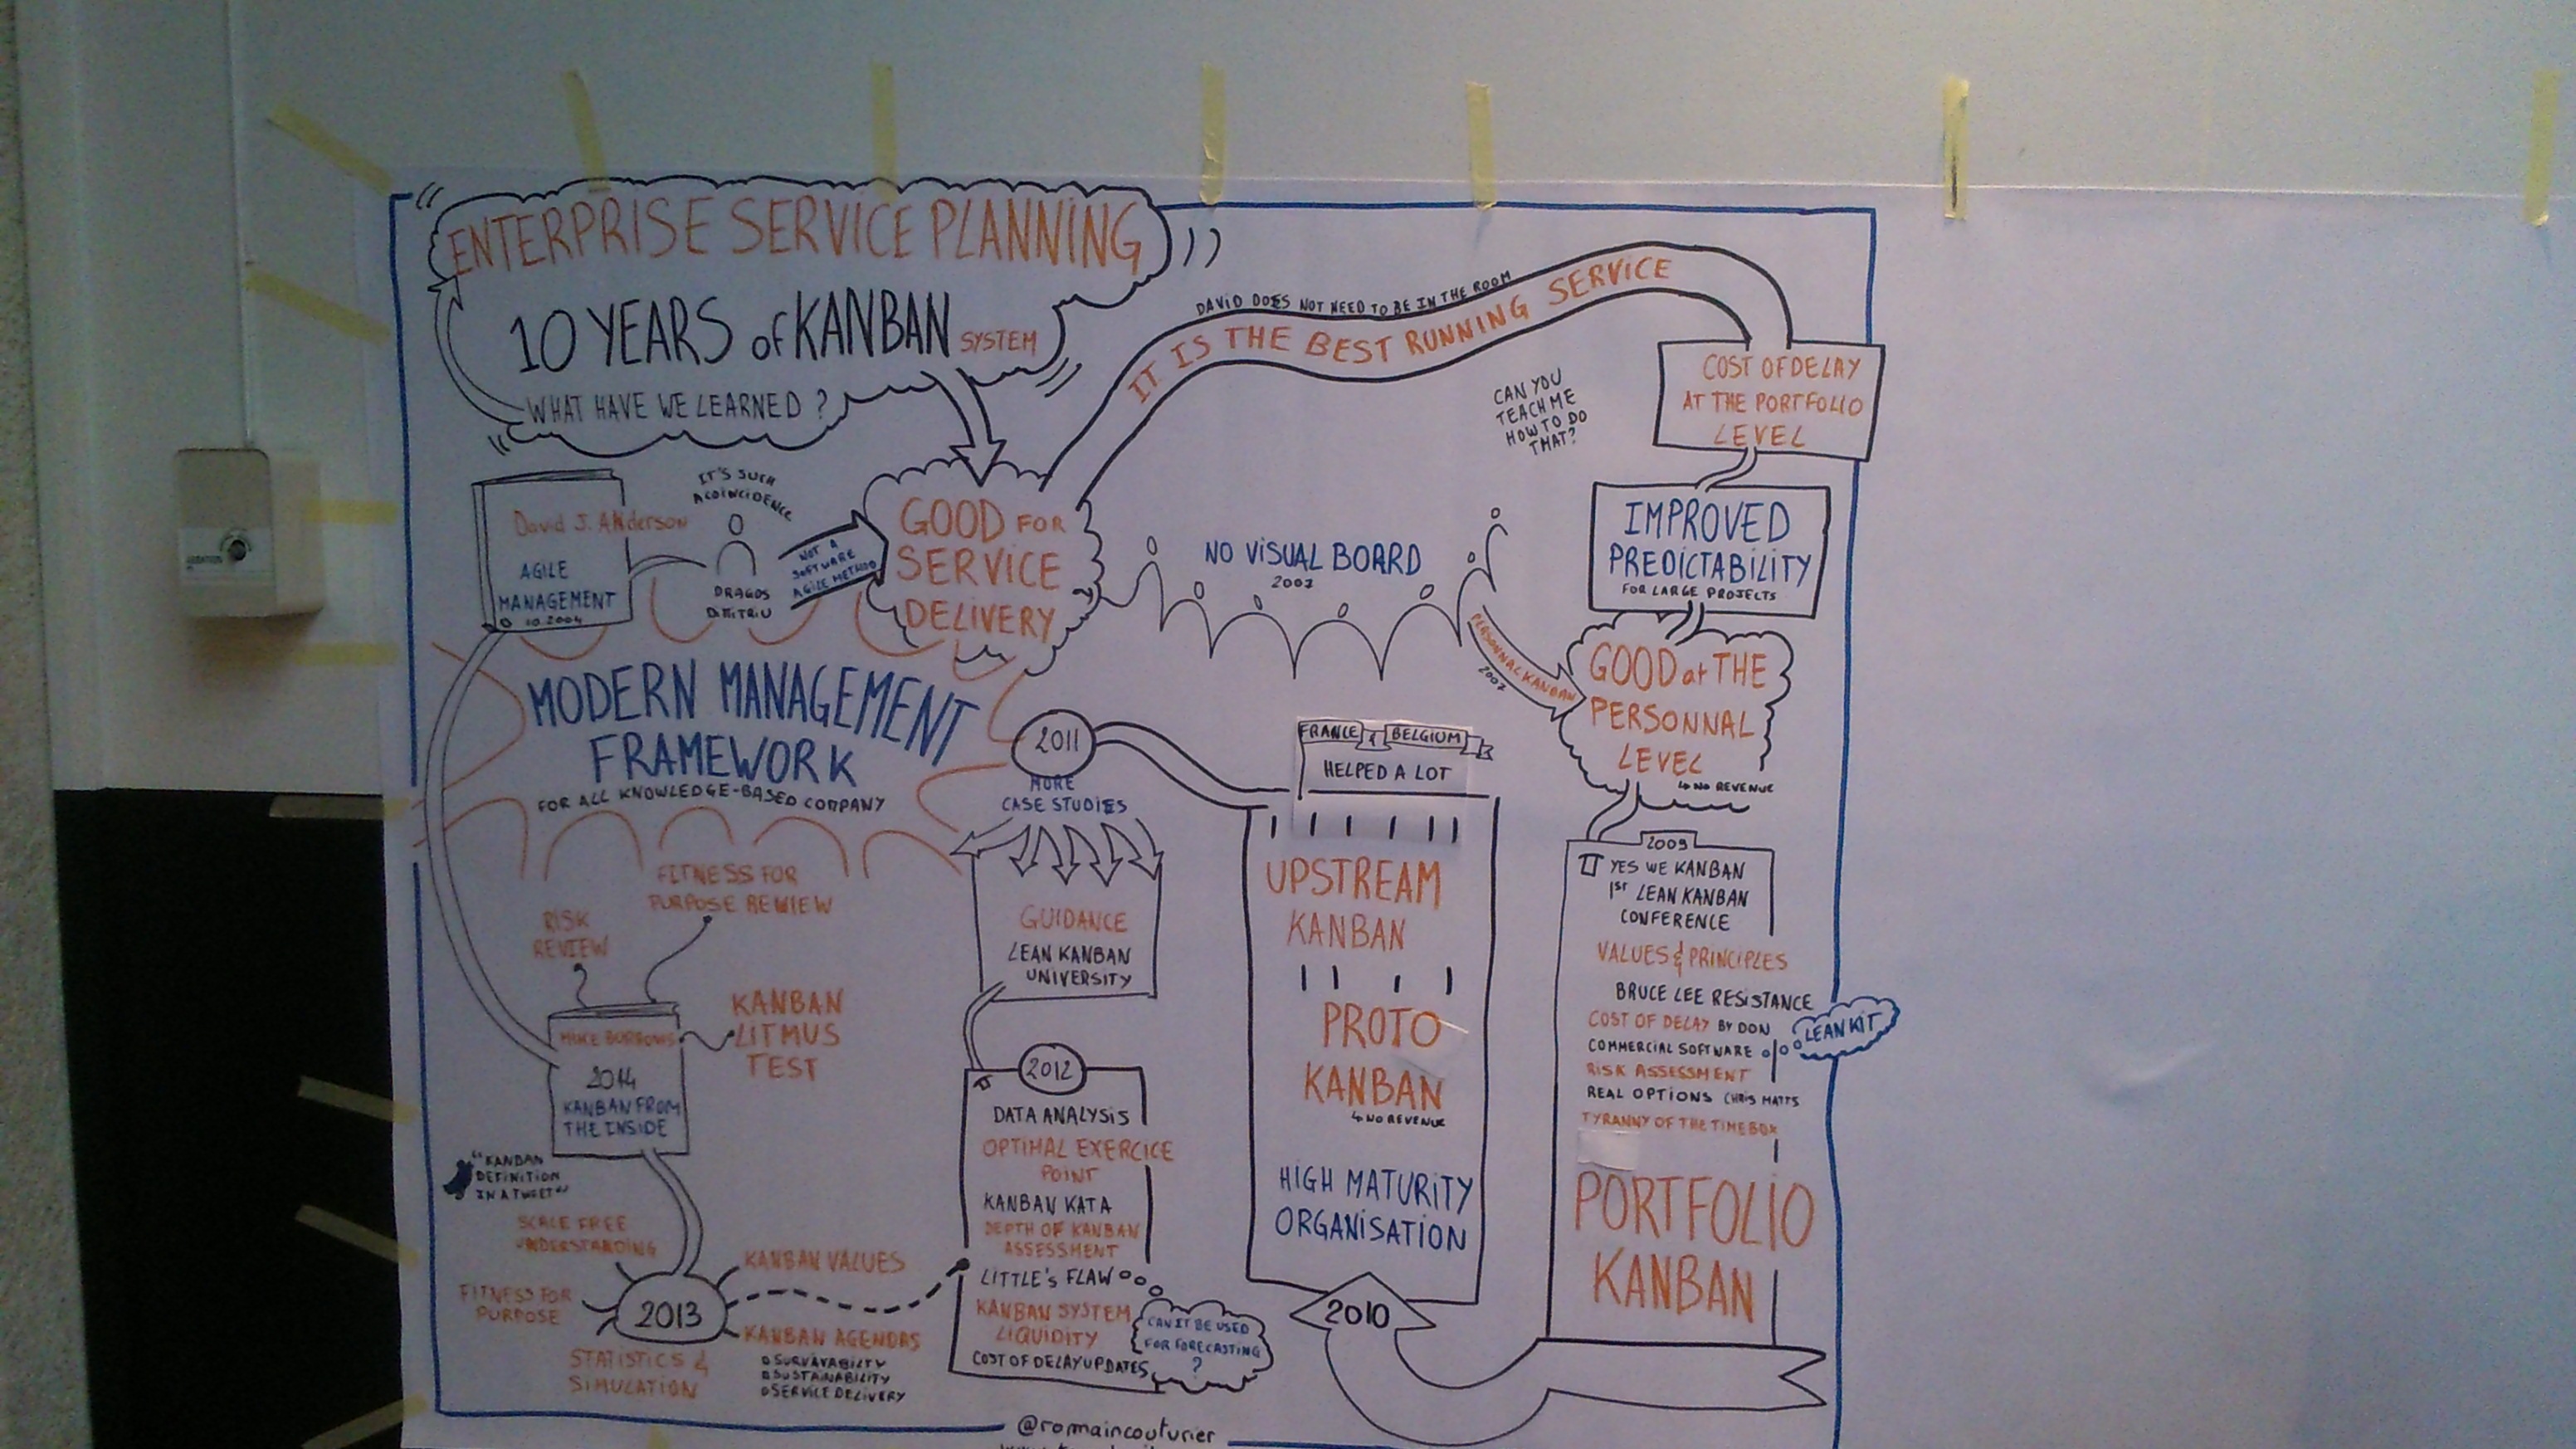 ENTERPRISE SERVICE PLANNING
10 YEARS of KANBAN SYSTEM
WHAT HAVE WE LEARNED ?
David J. Anderson
AGILE
MANAGEMENT
10.2004
IT'S SUCH
A COINCIDENCE
DRAGOS
DIMITRIU
NOT A
SOFTWARE
AGILE METHOD
GOOD FOR
SERVICE
DELIVERY
DAVID DOES NOT NEED TO BE IN THE ROOM
IT IS THE BEST RUNNING SERVICE
CAN YOU
TEACH ME
HOW TO DO
THAT?
COST OF DELAY
AT THE PORTFOLIO
LEVEL
IMPROVED
PREDICTABILITY
FOR LARGE PROJECTS
NO VISUAL BOARD
2007
PERSONNAL KANBAN
2007
GOOD at THE
PERSONNAL
LEVEL
↳ NO REVENUE
2009
YES WE KANBAN
1ST LEAN KANBAN
CONFERENCE
VALUES & PRINCIPLES
BRUCE LEE RESISTANCE
COST OF DELAY BY DON
COMMERCIAL SOFTWARE
LEAN KIT
RISK ASSESSMENT
REAL OPTIONS CHRIS MATTS
TYRANNY OF THE TIMEBOX
PORTFOLIO
KANBAN
2010
FRANCE & BELGIUM
HELPED A LOT
UPSTREAM
KANBAN
PROTO
KANBAN
↳ NO REVENUE
HIGH MATURITY
ORGANISATION
2011
MORE
CASE STUDIES
GUIDANCE
LEAN KANBAN
UNIVERSITY
2012
DATA ANALYSIS
OPTIMAL EXERCICE
POINT
KANBAN KATA
DEPTH OF KANBAN
ASSESSMENT
LITTLE'S FLAW
KANBAN SYSTEM
LIQUIDITY
COST OF DELAY UPDATES
CAN IT BE USED
FOR FORECASTING
?
2013
KANBAN VALUES
KANBAN AGENDAS
SURVAVABILTY
SUSTAINABILITY
SERVICE DELIVERY
STATISTICS &
SIMULATION
FITNESS FOR
PURPOSE
SCALE FREE
UNDERSTANDING
"KANBAN
DEFINITION
IN A TWEET"
MIKE BURROWS
2014
KANBAN FROM
THE INSIDE
RISK
REVIEW
FITNESS FOR
PURPOSE REWIEW
KANBAN
LITMUS
TEST
MODERN MANAGEMENT
FRAMEWORK
FOR ALL KNOWLEDGE-BASED COMPANY
@romaincouturier